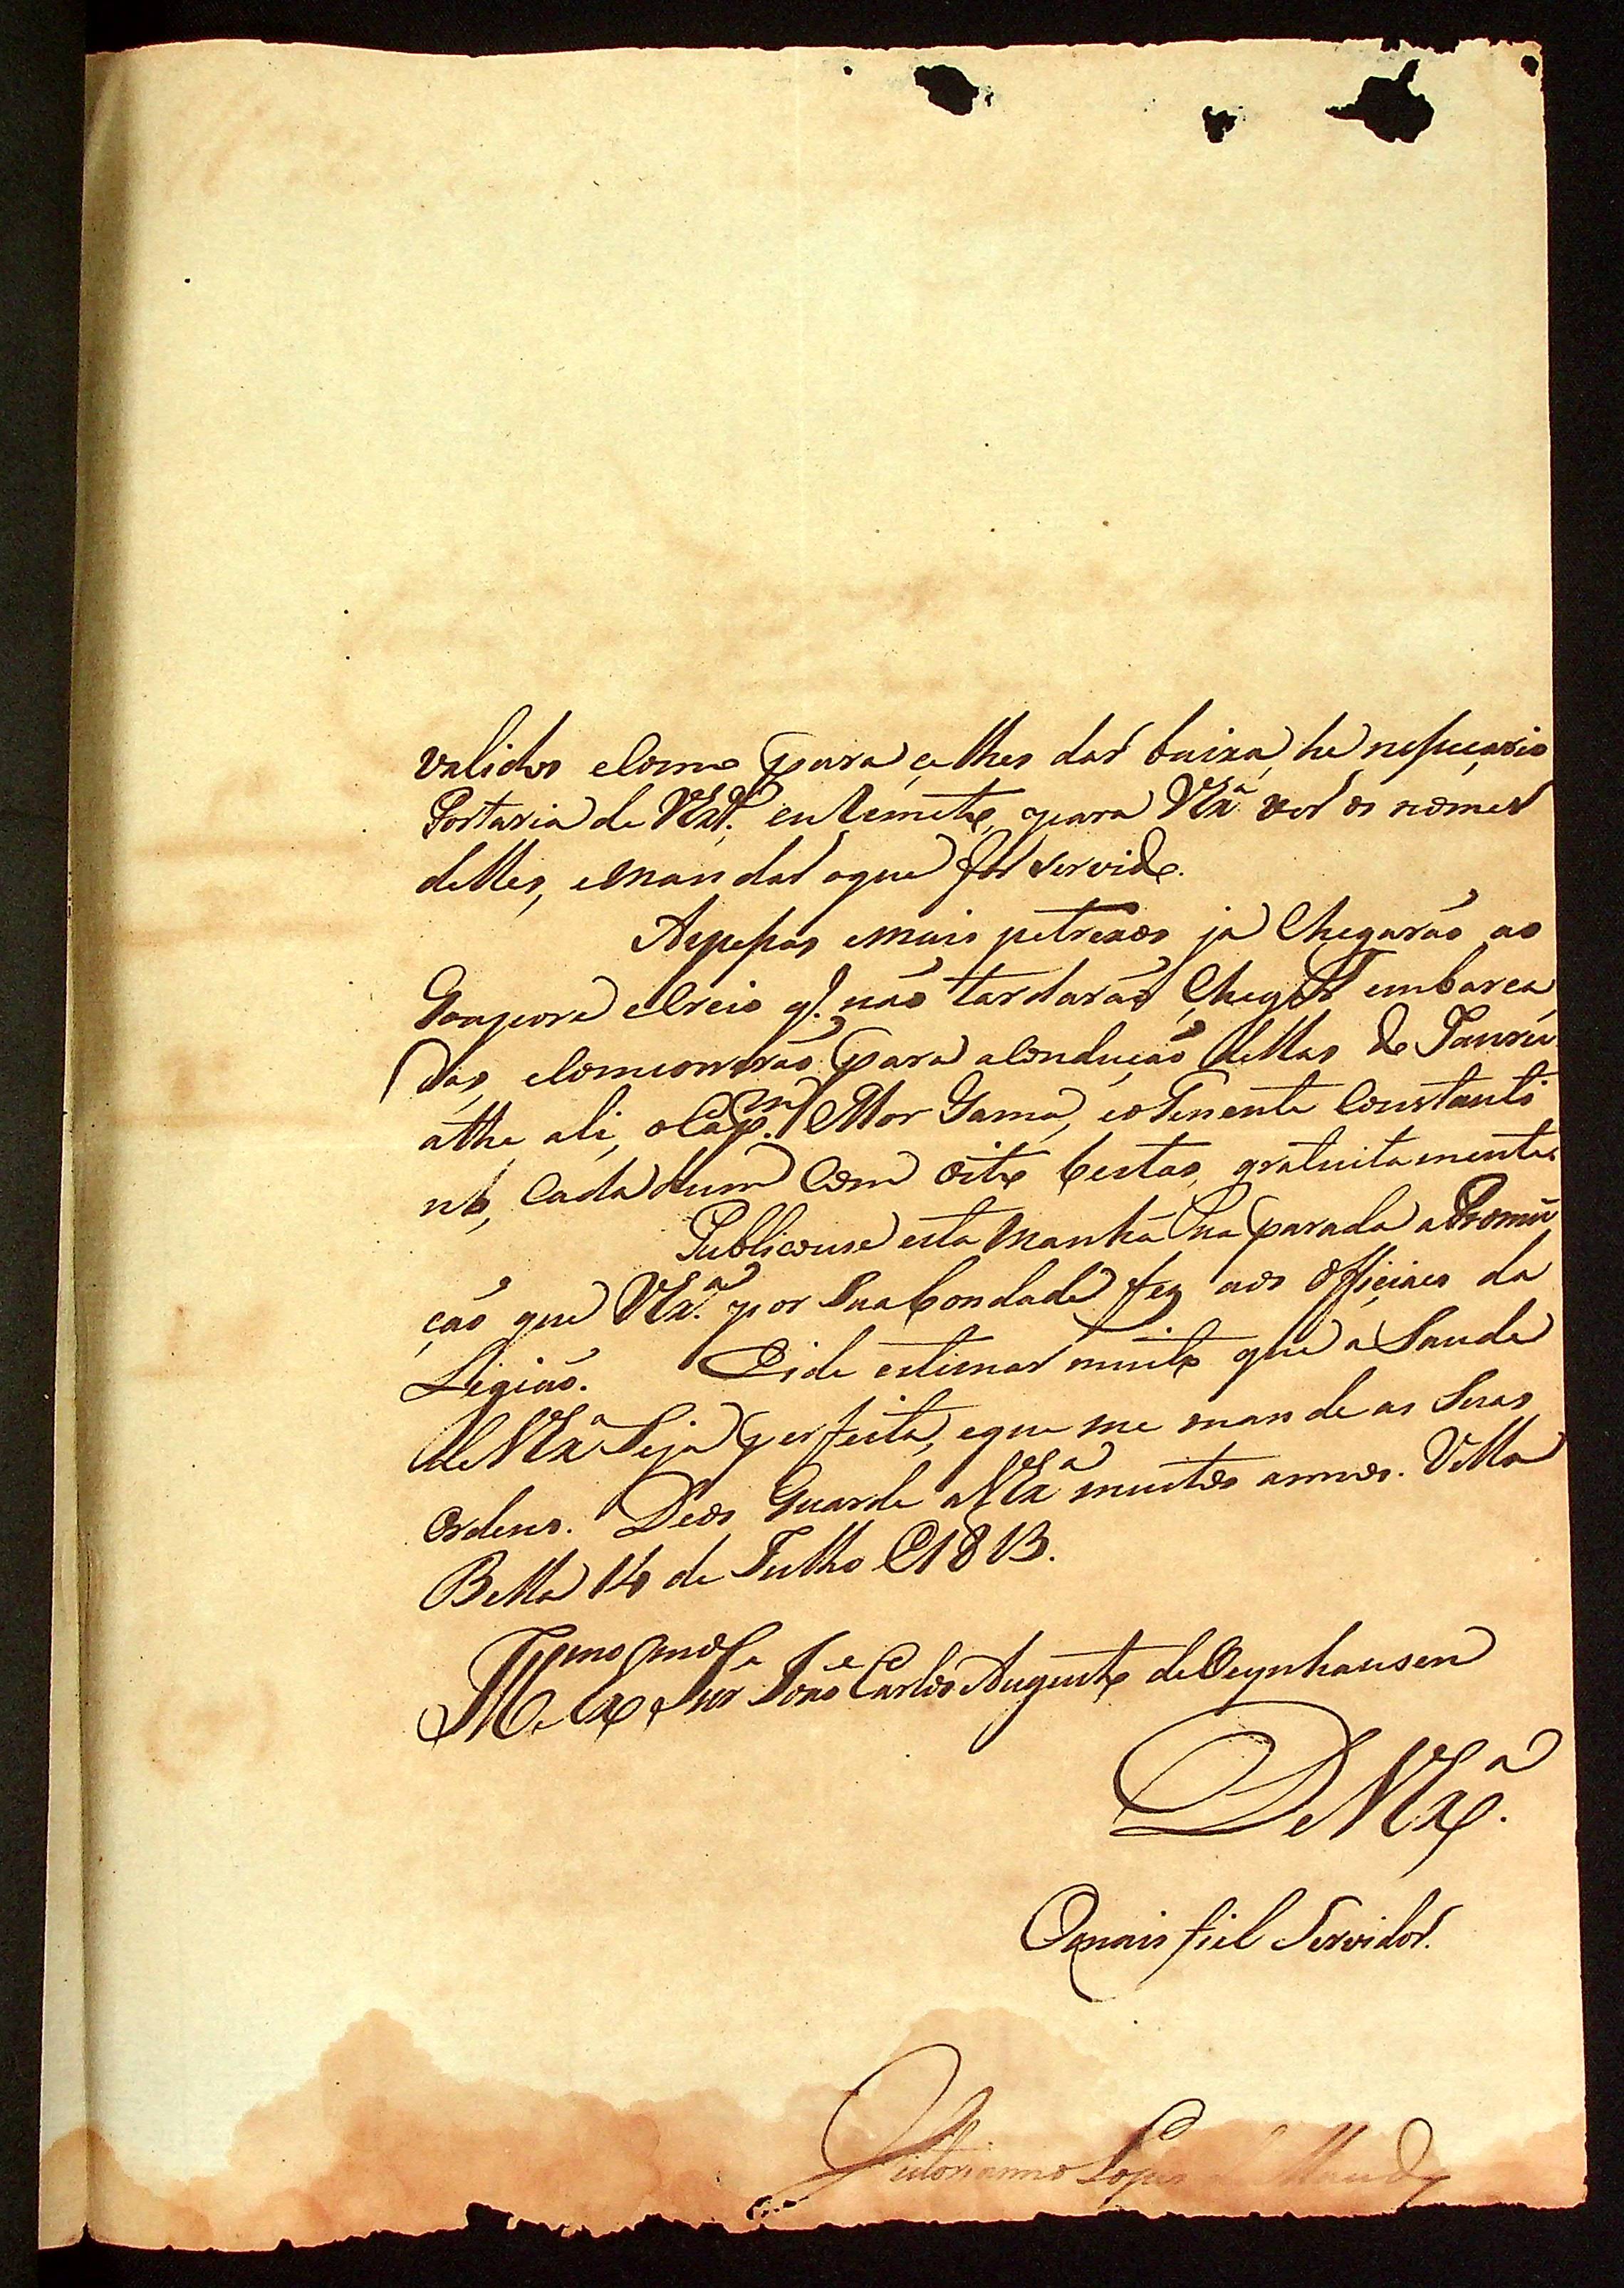 validos eComo para çelhes dar baixa, he neseçario
Portaria de VExª. eu Remeto, para VExª ver os nomes
delles, eMandar oque for Servido.
As pesas emais petrexos ja Chegarão ao
Goapore eCreio q. não tardarão Chegar embarca
das, eComcorrerão para aConduçaõ dellas de
athe ali, oCapm. Mor Gama, eoTenente Constanti
no, Cada hum Com Oito bestas, gratuitamente
Publicouse esta Manhã na parada aPromu
ção que VExª. por Sua bondade fez aos Officiaes da
Ligiaõ. Eide estimar muito que a Saude
de VExª Seja perfeita, eque me mande as Suas
Ordens. Deos Guarde aVExª muitos annos. Villa
Bella 14 de Julho de1813.
Illmo e Exmo Snr João Carlos Augusto deOeynhausen
De VExª.
Omais fiel Servidor.
Victorianno Lopes de Macedo